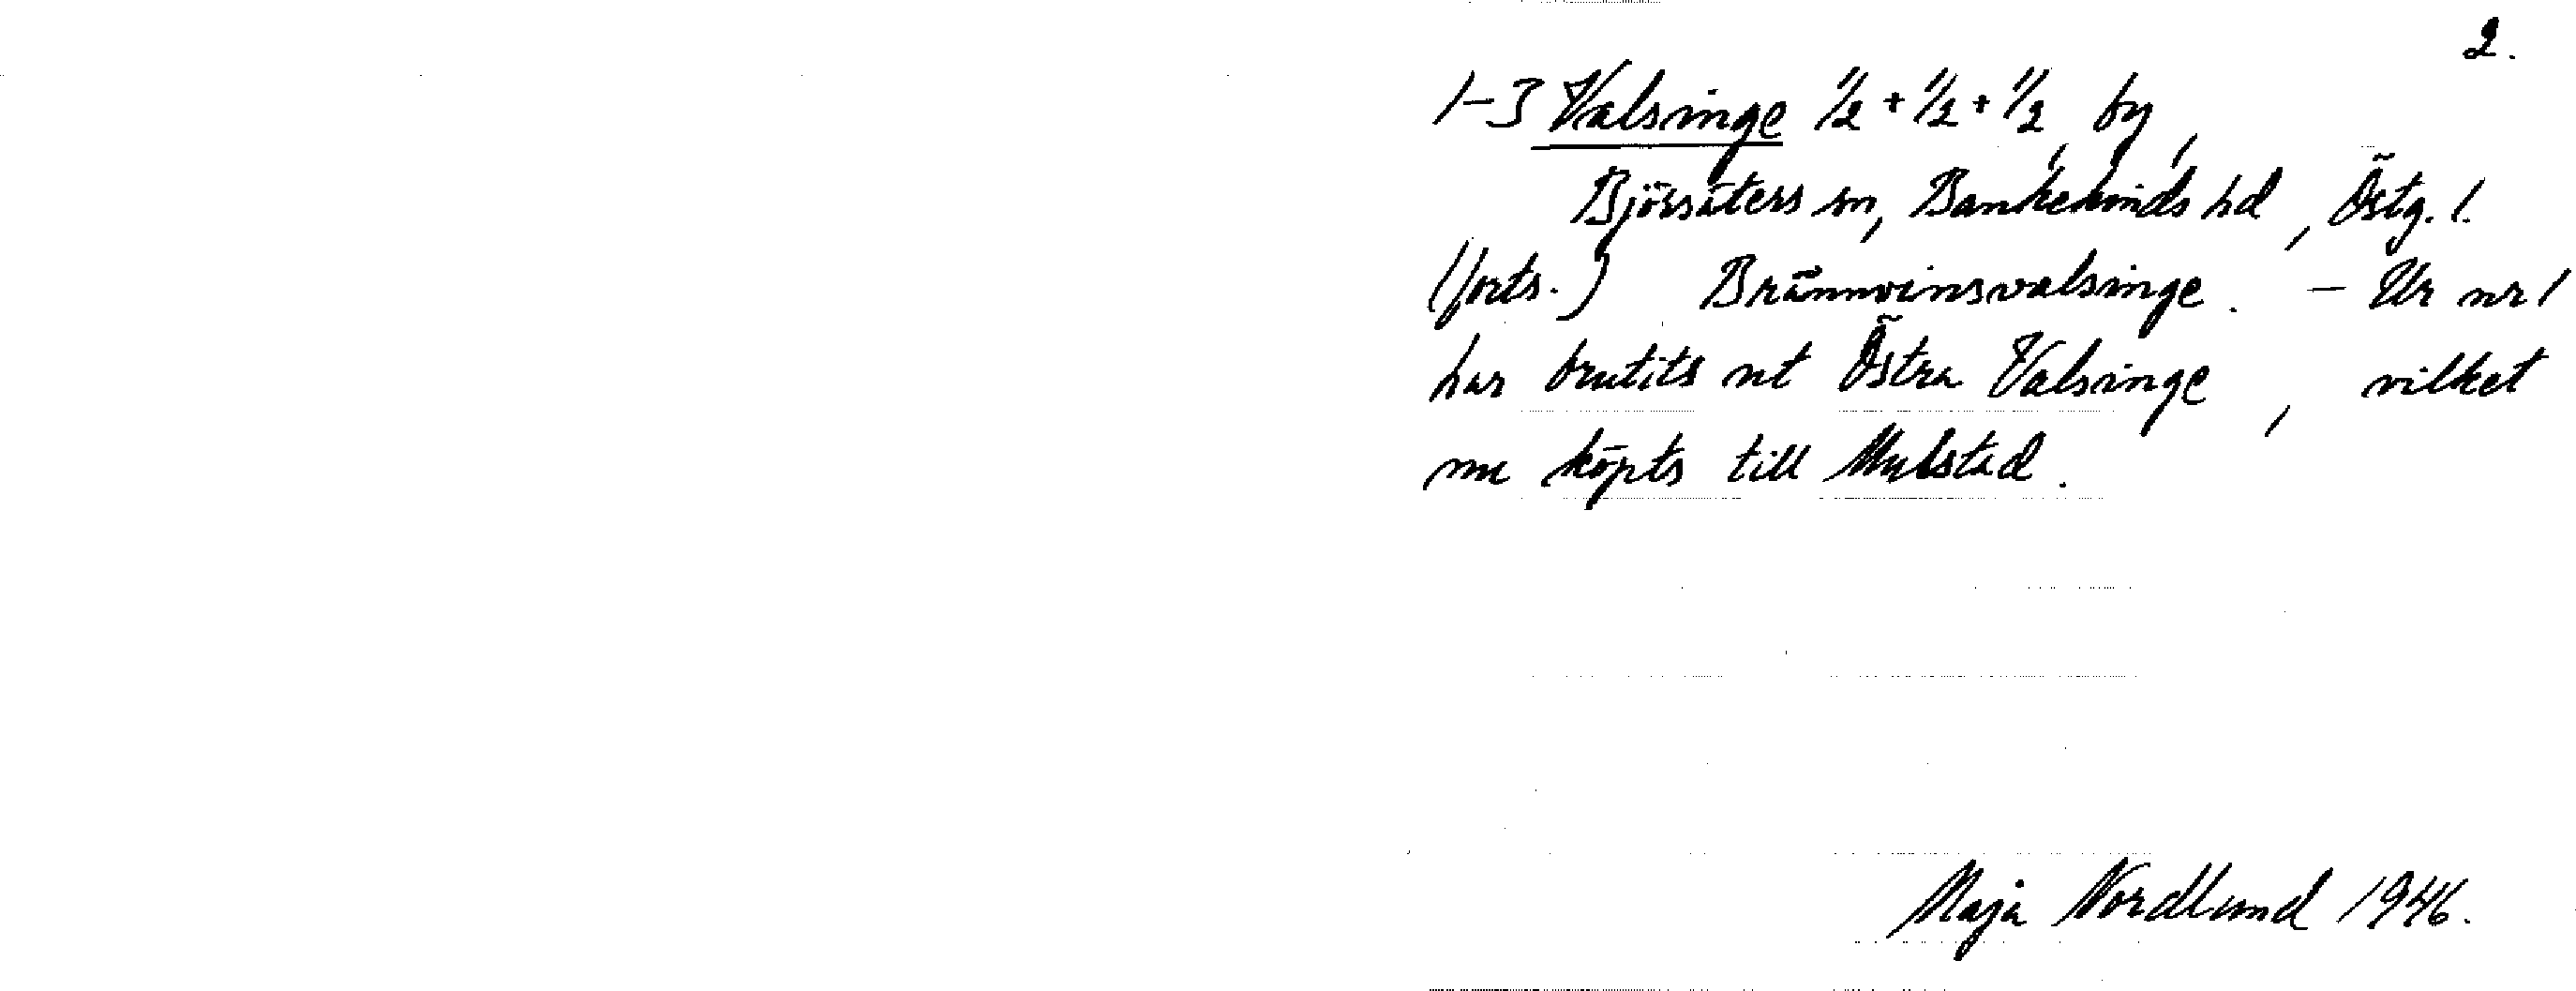 2.
1-3 Valsinge 1/2 + 1/2 + 1/2, by,
Björsäters sn, Bankekinds hd, Östg. l.
(forts.) Brännvinsvalsinge. – Ur nr 1
har brutits ut Östra Valsinge, vilket
nu köpts till Mulstad.
Maja Nordlund 1946.